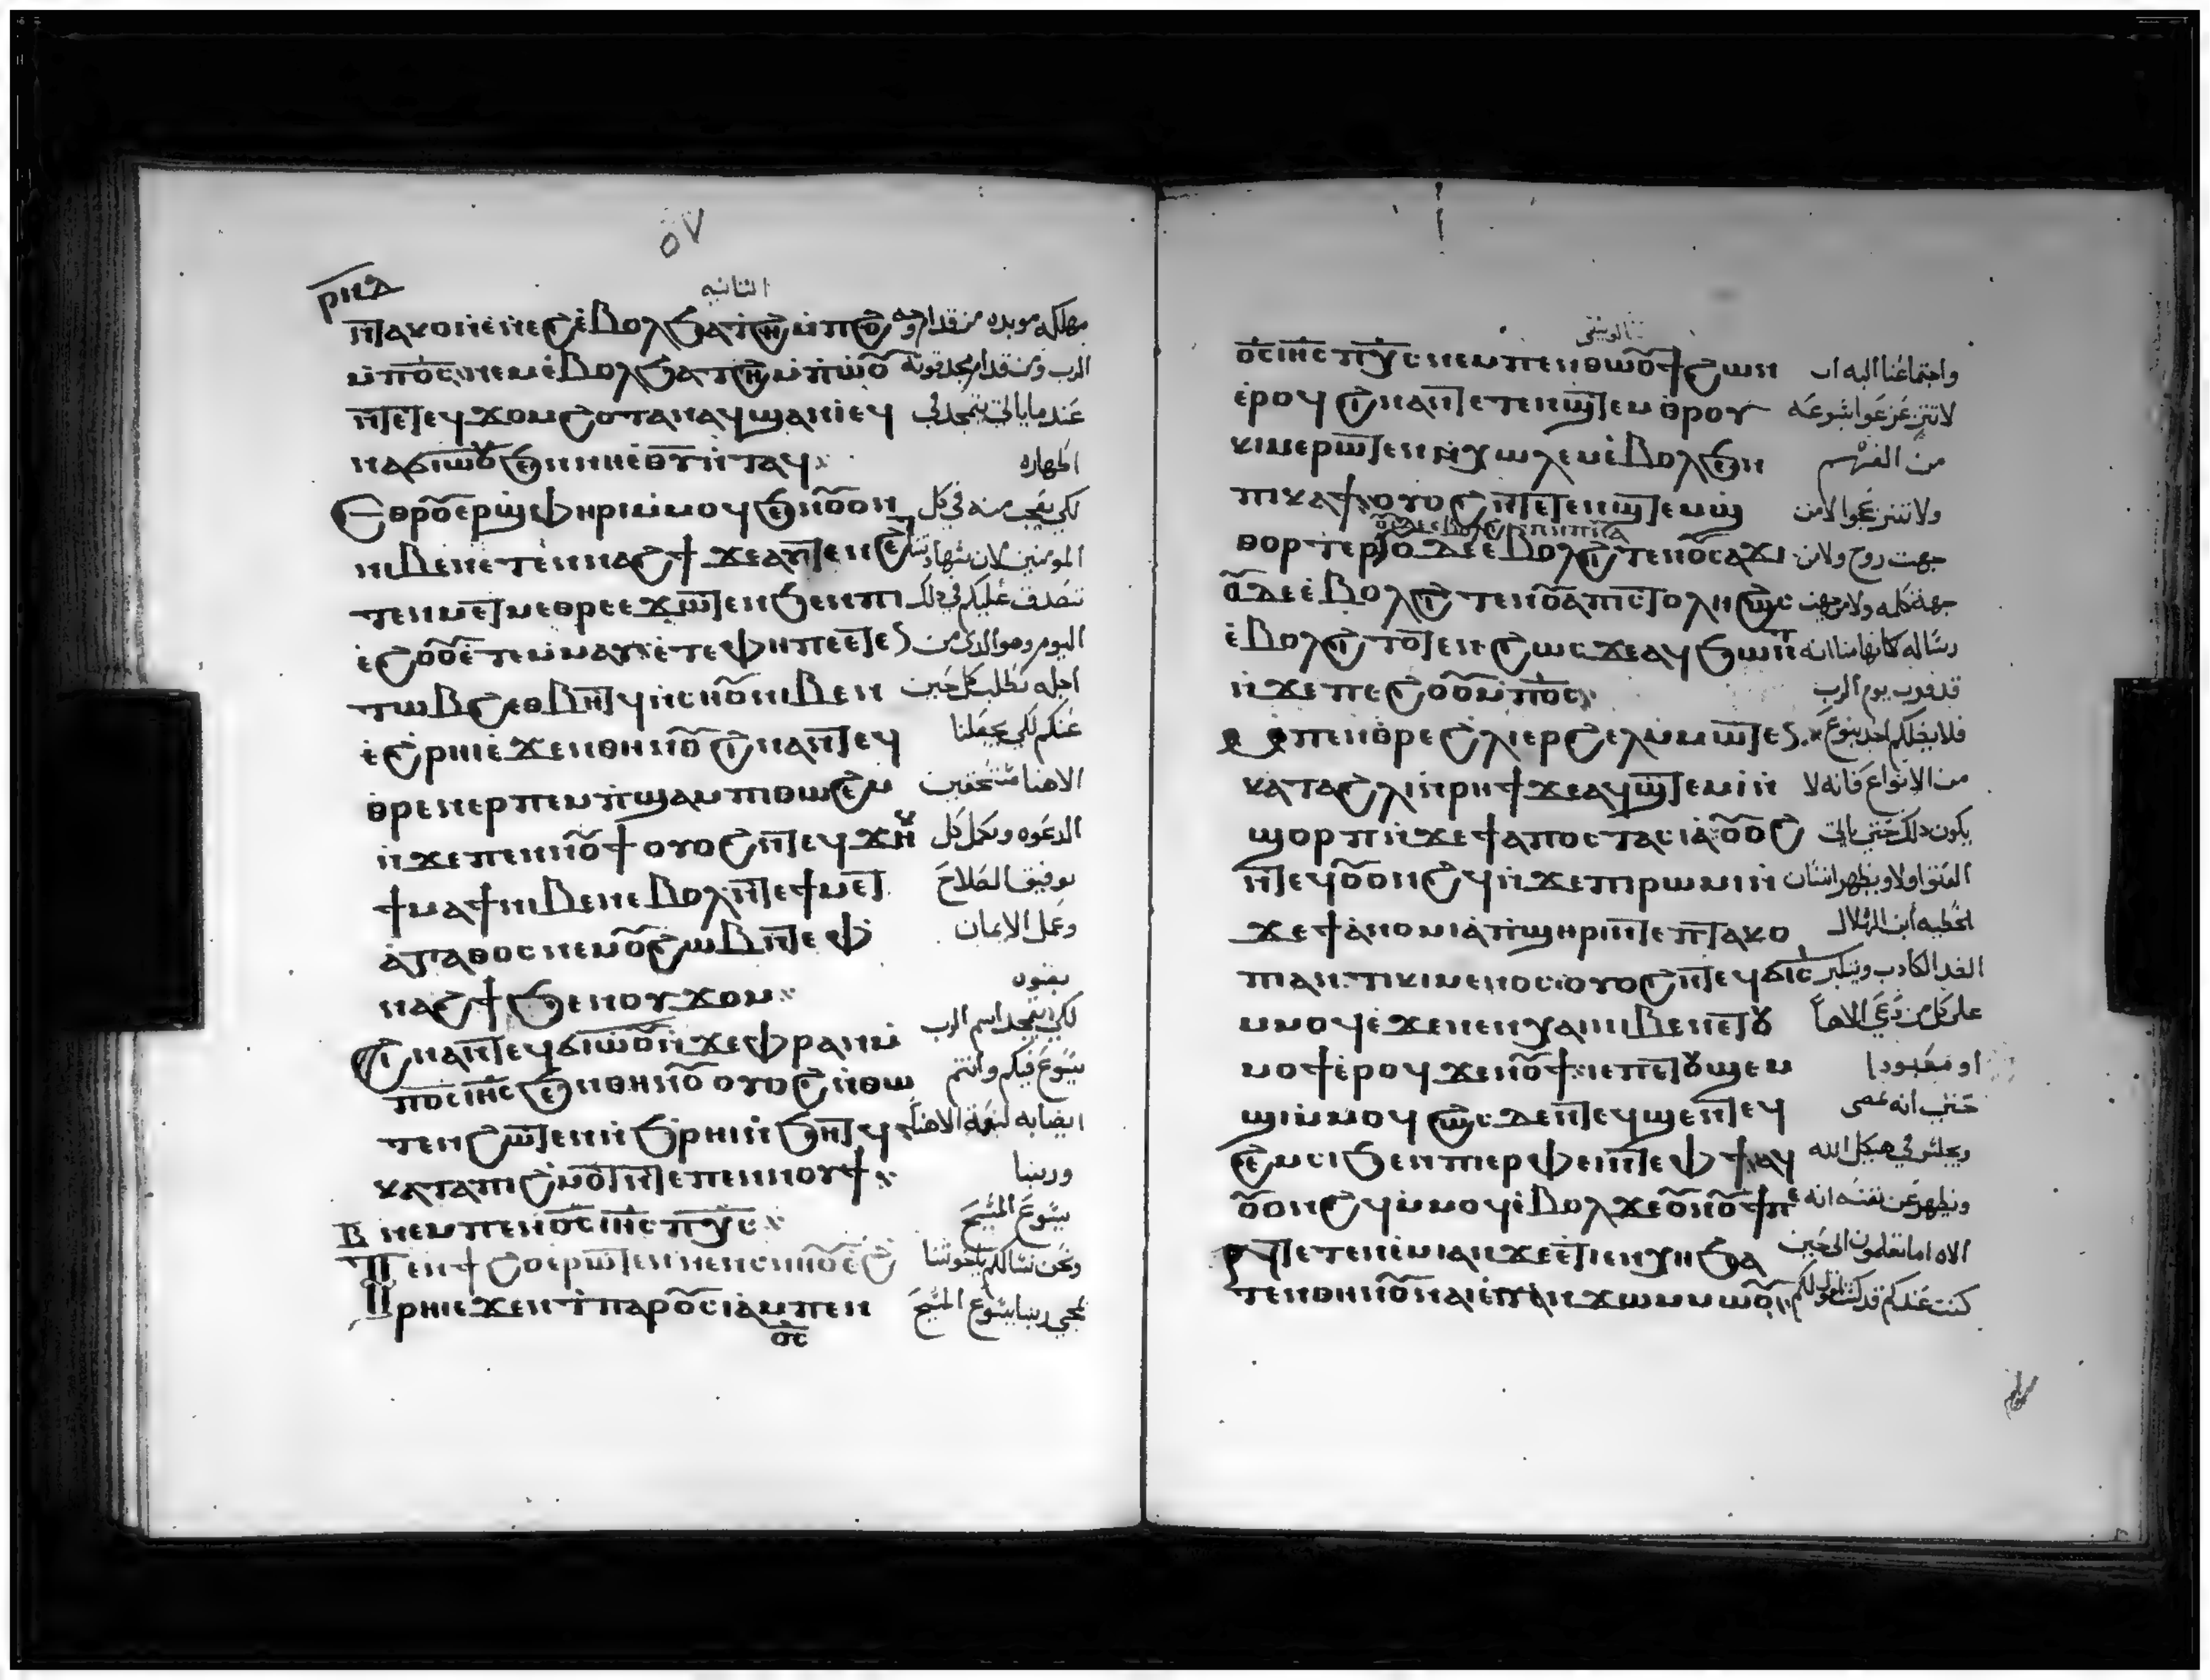 ⲣⲕⲑ
٥٧
الثانيه
ⲛⲧⲁⲕⲟ ⲛⲉⲛⲉϩ ⲉⲃⲟⲗϧⲁⲧϩⲏ ⲙⲡϩⲟ مهلكه موبده من قدام وجه
ⲙⲡⲟⲥ ⲛⲉⲙ ⲉⲃⲟⲗϧⲁⲧϩⲏ ⲙⲡⲱⲟⲩ الرب ومن قدام مجد قوته
ⲛⲧⲉ ⲧⲉϥϫⲟⲙ ϩⲟⲧⲁⲛ ⲁϥϣⲁⲛⲓ ⲉϥ عند ما ياتي يتمجد في
ⲛⲁϭⲓⲱⲟⲩ ϧⲉⲛ ⲛⲏⲉⲑⲩ ⲛⲧⲁϥ اطهاره
ⲉⲑⲣⲟⲩⲉⲣϣⲫⲏⲣⲓ ⲙⲙⲟϥ ϧⲉⲛ ⲟⲩⲟⲛ لكي يتعجب منه في كل
ⲛⲓⲃⲉⲛ ⲉⲧⲉⲛⲛⲁϩϯ ϫⲉ ⲁⲩⲧⲉⲛϩⲉⲧ المومنين لان شهادتنا
ⲧⲉⲛⲙⲉⲧⲙⲉⲑⲣⲉ ⲉϫⲱⲧⲉⲛ ϧⲉⲛ ⲡⲓ تصدق عليكم في ذلك
ⲉϩⲟⲟⲩ ⲉⲧⲉⲙⲙⲁⲩ ⲉⲧⲉ ⲫⲏ ⲡⲉ ⲉⲧⲉ اليوم وهو الذي من
ⲧⲱⲃϩ ⲉⲑⲃⲏⲧϥ ⲛⲥⲏⲟⲩ ⲛⲓⲃⲉⲛ اجله نطلب كل حين
ⲉϩⲣⲏⲓ ⲉϫⲉⲛ ⲑⲏⲛⲟⲩ ϩⲓⲛⲁ ⲛⲧⲉϥ عنكم لكي يجعلنا
ⲑⲣⲉⲛⲉⲣⲡⲉⲙⲡϣⲁ ⲙⲡⲓⲑⲱϩⲉⲙ الاهنا مستحقين
ⲛϫⲉ ⲡⲉⲛⲛⲟⲩϯ ⲟⲩⲟϩ ⲛⲧⲉϥϫⲱⲕ الدعوه ويكمل كل
ϯⲙⲁϯ ⲛⲓⲃⲉⲛ ⲉⲃⲟⲗ ⲛⲧⲉ ϯⲙⲉⲧ توفيق الصلاح
ⲁⲅⲁⲑⲟⲥ ⲛⲉⲙ ⲟⲩϩⲱⲃ ⲛⲧⲉ ⲫ وعمل الايمان
ⲛⲁϩϯ ϧⲉⲛ ⲟⲩϫⲟⲙ بقوه
ϩⲓⲛⲁ ⲛⲧⲉϥϭⲓⲱⲟⲩ ⲛϫⲉ ⲫⲣⲁⲛ ⲙ لكي يتمجد اسم الرب
ⲡⲟⲥ ⲓⲏⲥ ϧⲉⲛ ⲑⲏⲛⲟⲩ ⲟⲩⲟϩ ⲛⲑⲱ يسوع فيكم وانتم
ⲧⲉⲛ ϩⲱⲧⲉⲛ ⲛϧⲣⲏⲓ ⲛϧⲏⲧϥ ايضا به لنعمة الاهنا
ⲕⲁⲧⲁ ⲡⲓϩⲙⲟⲧ ⲛⲧⲉ ⲡⲉⲛⲛⲟⲩϯ وربنا
ⲃ ⲛⲉⲙ ⲡⲉⲛⲟⲥ ⲓⲏⲥ ⲡⲭⲥ يسوع المسيح
ⲧⲉⲛϯϩⲟ ⲉⲣⲱⲧⲉⲛ ⲛⲉⲛⲥⲛⲏⲟⲩ ⲉϩ ونحن نسالكم ياخوتنا
ⲣⲏⲓ ⲉϫⲉⲛ ⲧⲡⲁⲣⲟⲩⲥⲓⲁ ⲙⲡⲉⲛ لمجي ربنا يسوع المسيح
ⲟⲥ
ⲟⲥ ⲓⲏⲥ ⲡⲭⲥ ⲛⲉⲙ ⲡⲉⲛⲑⲱⲟⲩϯ ϩⲱⲛ واجتماعنا اليه ان
ⲉⲣⲟϥ ϩⲓⲛⲁ ⲛⲧⲉⲧⲉⲛϣⲧⲉⲙⲑⲣⲟⲩ لا تتزعزعوا بسرعه
ⲕⲓⲙ ⲉⲣⲱⲧⲉⲛ ⲛⲭⲱⲗⲉⲙ ⲉⲃⲟⲗϧⲉⲛ من الفهم
ⲡⲓⲕⲁϯ ⲟⲩⲟϩ ⲛⲧⲉⲧⲉⲛϣⲧⲉⲙϣ ولا تنزعجوا لا من
ⲑⲟⲣⲧⲉⲣ ⲟⲩⲇⲉ ⲉⲃⲟⲗϩⲓⲧⲉⲛ ⲟⲩⲥⲁϫⲓ جهت روح ولا من
ⲟⲩⲇⲉ ⲉⲃⲟⲗϩⲓⲧⲉⲛ ⲟⲩⲉⲡⲓⲥⲧⲟⲗⲏ ϩⲱⲥ جهة كلمه ولا من جهت
ⲉⲃⲟⲗϩⲓⲧⲟⲧⲉⲛ ϩⲱⲥ ϫⲉ ⲁϥϧⲱⲛⲧ رساله كانها منا انه
ⲛϫⲉ ⲡⲉϩⲟⲟⲩ ⲙⲡⲟⲥ قد قرب يوم الرب
ⲙⲡⲉⲛⲑⲣⲉ ϩⲗⲓ ⲉⲣϩⲉⲗ ⲙⲙⲱⲧⲉⲛ فلا يضلكم احد بنوع
ⲕⲁⲧⲁ ϩⲗⲓ ⲛⲣⲏϯ ϫⲉ ⲁϥϣⲧⲉⲙⲓ ⲛ من الانواع فانه لا
ϣⲟⲣⲡ ⲛϫⲉ ϯⲁⲡⲟⲥⲧⲁⲥⲓⲁ ⲟⲩⲟϩ يكون ذلك حتى ياتي
ⲛⲧⲉϥⲟⲩⲟⲛϩϥ ⲛϫⲉ ⲡⲓⲣⲱⲙⲓ ⲛ اولا ويظهر انسان
ϫⲉ ϯⲁⲛⲟⲙⲓⲁ ⲡϣⲏⲣⲓ ⲛⲧⲉ ⲡⲧⲁⲕⲟ الخطيه ابن الهلاك
ⲡⲓⲁⲛⲧⲓⲕⲓⲙⲉⲛⲟⲥ ⲟⲩⲟϩ ⲛⲧⲉϥϭⲓⲥⲓ الكادب ويتكبر
ⲙⲙⲟϥ ⲉϫⲉⲛ ⲉⲛⲭⲁⲓ ⲛⲓⲃⲉⲛ ⲉⲧⲟⲩ على كل من دعي الاها
ⲙⲟⲩϯ ⲉⲣⲟϥ ϫⲉ ⲛⲟⲩϯ ⲓⲉ ⲡⲉⲧⲟⲩϣⲉⲙ او معبودا
ϣⲓ ⲙⲙⲟϥ ϩⲱⲥⲇⲉ ⲛⲧⲉϥϣⲉ ⲛⲧⲉϥ حتى انه
ϩⲉⲙⲥⲓ ϧⲉⲛ ⲡⲓⲉⲣⲫⲉⲓ ⲛⲧⲉ ⲫϯ ⲉϥ ويجلس في هيكل الله
ⲟⲩⲟⲛϩ ⲙⲙⲟϥ ⲉⲃⲟⲗ ϫⲉ ⲟⲩⲛⲟⲩϯ ⲡⲉ ويظهر عن نفسه انه
ⲧⲉⲧⲉⲛⲉⲙⲓ ⲁⲛ ϫⲉ ⲉⲧⲓ ⲉⲓⲭⲏ ϧⲁ الاه اما تعلمون الى حين
ⲧⲉⲛ ⲑⲏⲛⲟⲩ ⲛⲁⲓ ⲛⲁⲓϫⲱ ⲙⲙⲱⲟⲩ كنت عندكم قد كنت اقول لكم